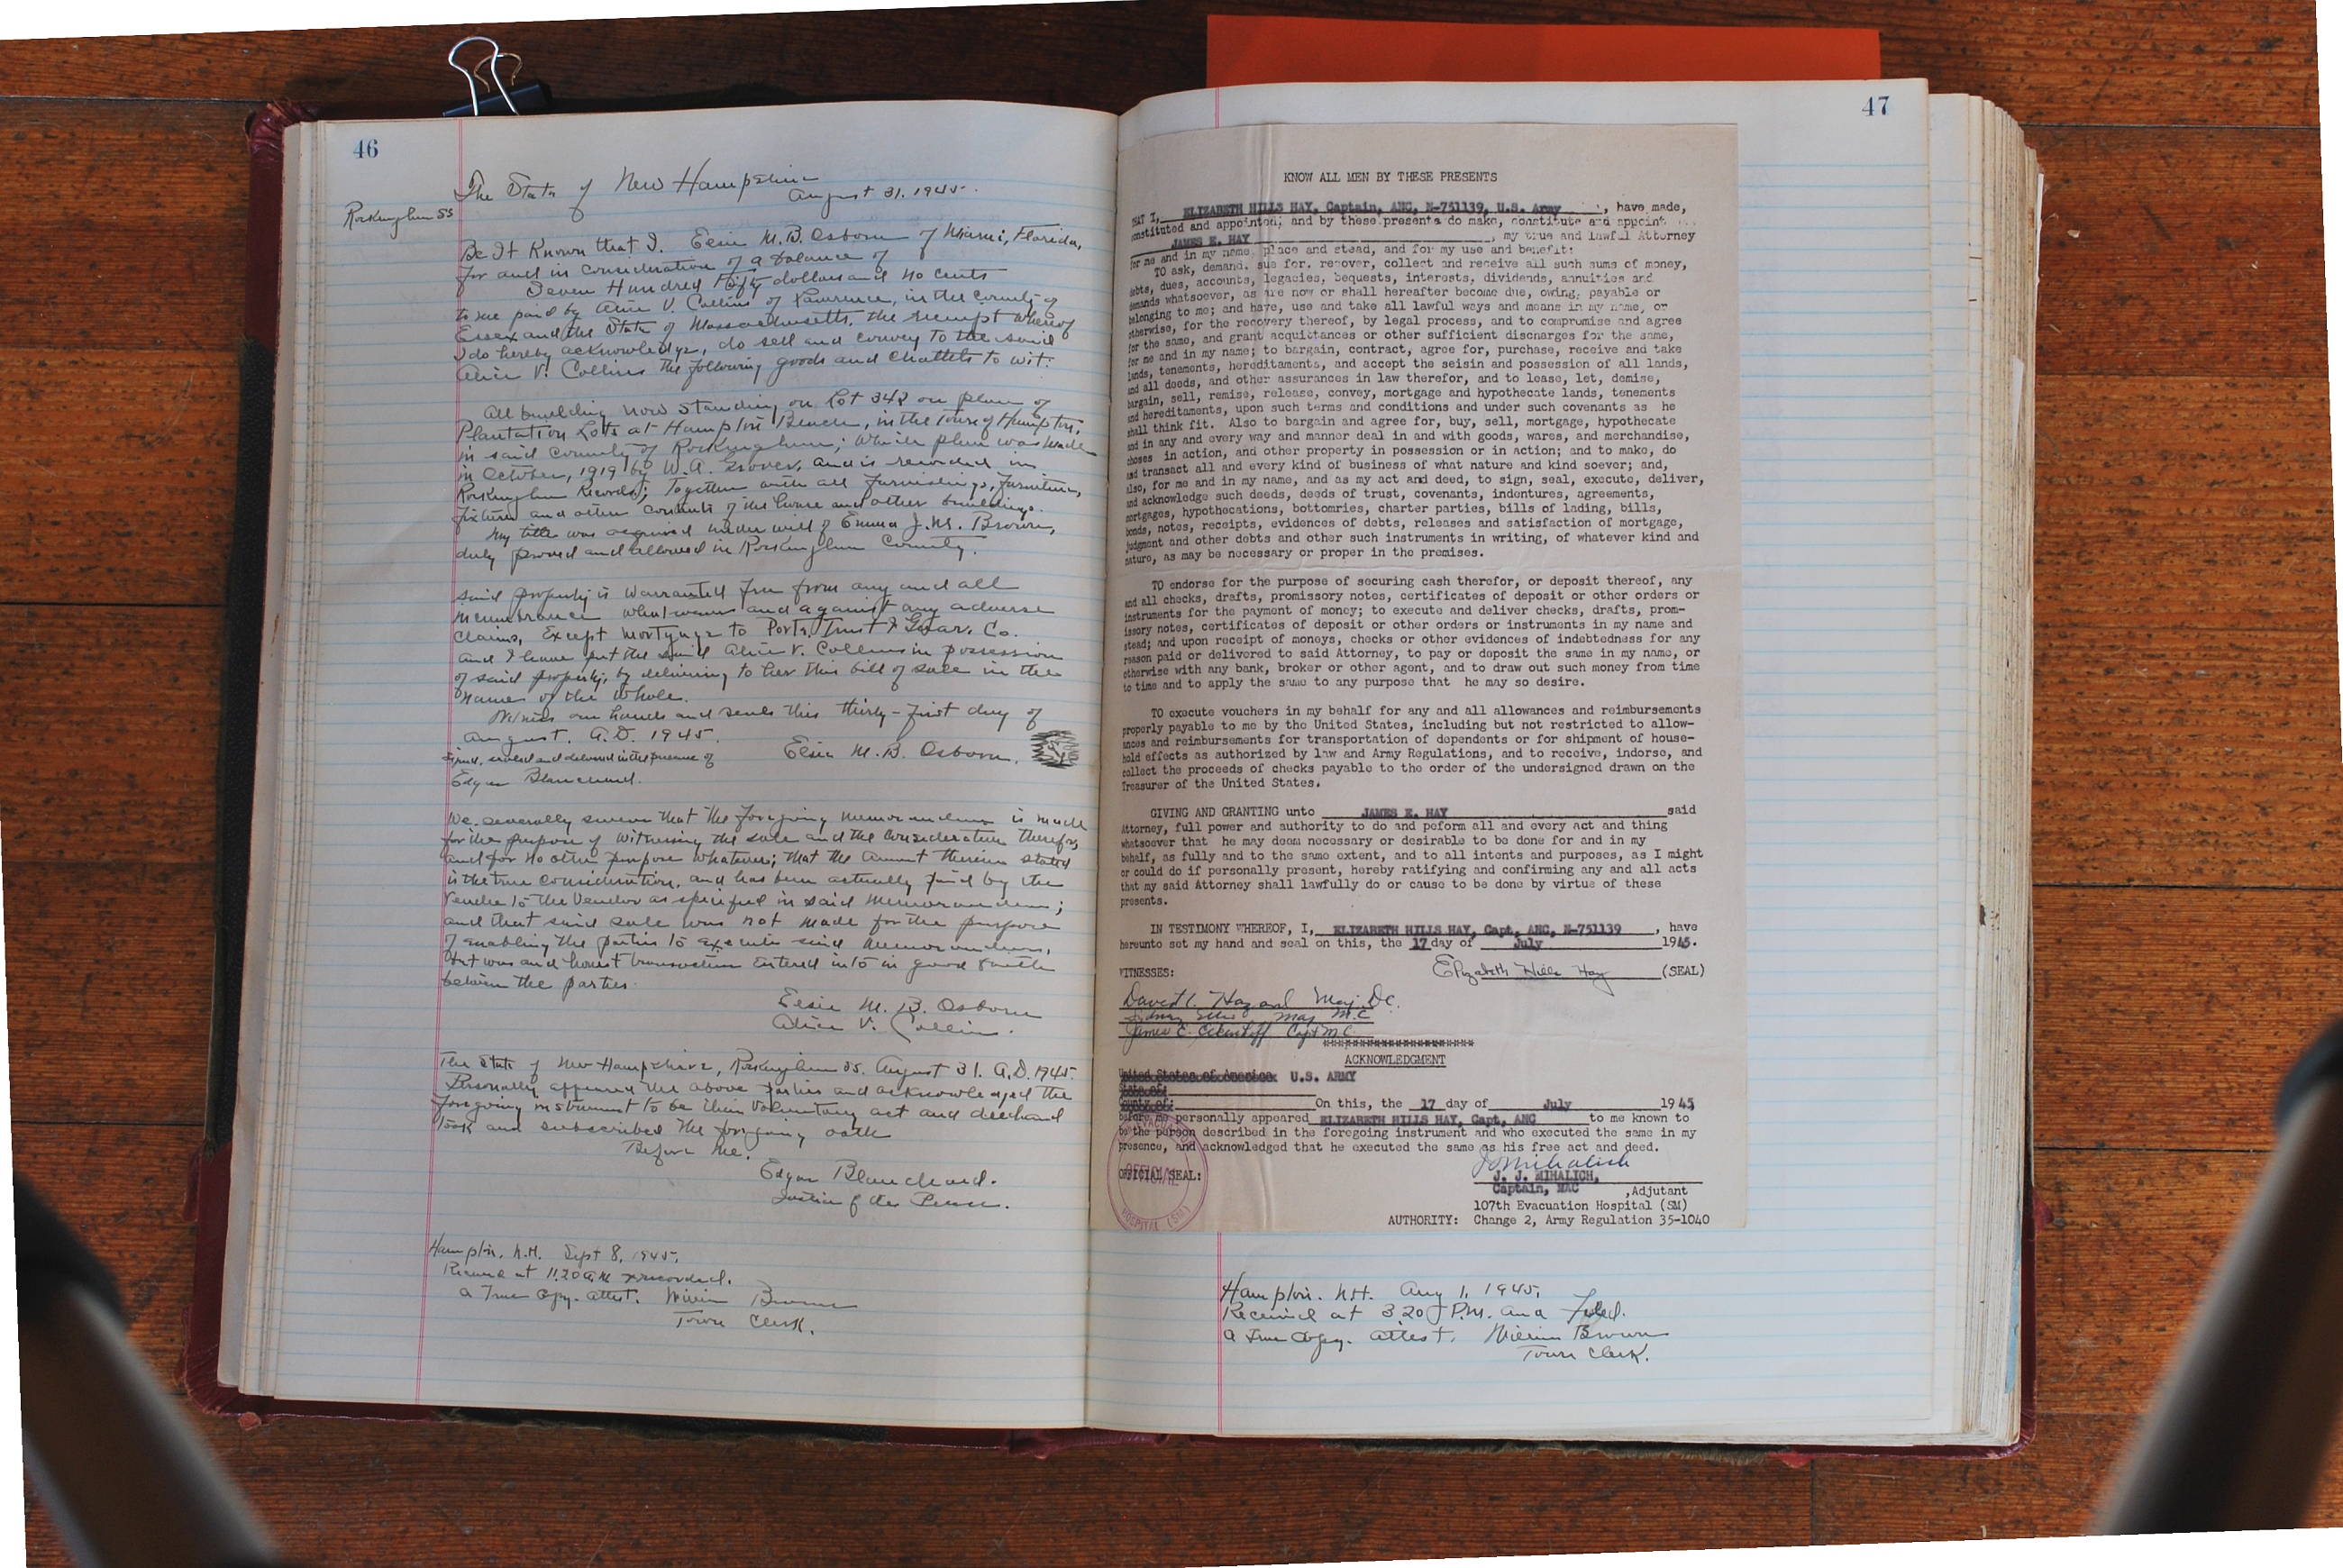 46
The State of New Hampshire
August 31, 1945.
Rockingham SS
Be It Known that I. Elsie M. B. Osborn of Miami, Florida,
for and in consideration of a balance of
Seven Hundred Fifty dollars and no cents
to me paid by Alice V. Collins of Lawrence, in the County of
Essex and the State of Massachusetts, the receipt whereof
I do hereby acknowledge, do sell and convey to the said
Alice V. Collins the following goods and chattels to wit:
All building now standing on Lot 342 on plan of
Plantation Lots at Hampton Beach, in the Town of Hampton,
in said County of Rockingham; which plan was made
in October, 1919 by W. A. Grover, and is recorded in
Rockingham Records; Together with all furnishings, furniture,
fixtures and other contents of the house and other buildings.
My title was acquired under will of Emma J. M. Brown,
duly proved and allowed in Rockingham County.
Said property is warranted free from any and all
incumbrance whatsoever and against any adverse
claims, Except mortgage to Ports. Trust & Guar. Co.
and I have put the said Alice V. Collins in possession
of said property, by delivering to her this bill of sale in the
name of the whole.
Witness our hands and seals this thirty-first day of
August. A.D. 1945.
Signed, sealed and delivered in the presence of
Elsie M. B. Osborn.
Edgar Blanchard.
We severally swear that the foregoing memorandum is made
for the purpose of witnessing the sale and the consideration therefor,
and for no other purpose whatever; that the amount therein stated
is the true consideration, and has been actually paid by the
Vendee to the Vendor as specified in said memorandum;
and that said sale was not made for the purpose
of enabling the parties to execute said memorandum,
but was and honest transaction entered into in good faith
between the parties.
Elsie M. B. Osborn
Alice V. Collins.
The State of New Hampshire, Rockingham SS. August 31. A.D. 1945.
Personally appeared the above parties and acknowledged the
foregoing instrument to be their voluntary act and deed and
took and subscribed the foregoing oath
Before me,
Edgar Blanchard.
Justice of the Peace.
Hampton, N.H. Sept 8, 1945.
Received at 11.20 A.M. & recorded.
A True Copy. Attest. William Brown
Town Clerk.
47
KNOW ALL MEN BY THESE PRESENTS
THAT I, ELIZABETH HILLS HAY, Captain, ANC, N-751139, U.S. Army, have made,
constituted and appointed; and by these presents do make, constitute and appoint
JAMES E. HAY, my true and lawful Attorney
for me and in my name place and stead, and for my use and benefit:
TO ask, demand, sue for, recover, collect and receive all such sums of money,
debts, dues, accounts, legacies, bequests, interests, dividends, annuities and
demands whatsoever, as are now or shall hereafter become due, owing, payable or
belonging to me; and have, use and take all lawful ways and means in my name, or
otherwise, for the recovery thereof, by legal process, and to compromise and agree
for the same, and grant acquittances or other sufficient discharges for the same,
for me and in my name; to bargain, contract, agree for, purchase, receive and take
lands, tenements, hereditaments, and accept the seisin and possession of all lands,
and all deeds, and other assurances in law therefor, and to lease, let, demise,
bargain, sell, remise, release, convey, mortgage and hypothecate lands, tenements
and hereditaments, upon such terms and conditions and under such covenants as he
shall think fit. Also to bargain and agree for, buy, sell, mortgage, hypothecate
and in any and every way and manner deal in and with goods, wares, and merchandise,
choses in action, and other property in possession or in action; and to make, do
and transact all and every kind of business of what nature and kind soever; and,
also, for me and in my name, and as my act and deed, to sign, seal, execute, deliver,
and acknowledge such deeds, deeds of trust, covenants, indentures, agreements,
mortgages, hypothecations, bottomries, charter parties, bills of lading, bills,
bonds, notes, receipts, evidences of debts, releases and satisfaction of mortgage,
judgment and other debts and other such instruments in writing, of whatever kind and
nature, as may be necessary or proper in the premises.
TO endorse for the purpose of securing cash therefor, or deposit thereof, any
and all checks, drafts, promissory notes, certificates of deposit or other orders or
instruments for the payment of money; to execute and deliver checks, drafts, prom-
issory notes, certificates of deposit or other orders or instruments in my name and
stead; and upon receipt of moneys, checks or other evidences of indebtedness for any
reason paid or delivered to said Attorney, to pay or deposit the same in my name, or
otherwise with any bank, broker or other agent, and to draw out such money from time
to time and to apply the same to any purpose that he may so desire.
TO execute vouchers in my behalf for any and all allowances and reimbursements
properly payable to me by the United States, including but not restricted to allow-
ances and reimbursements for transportation of dependents or for shipment of house-
hold effects as authorized by law and Army Regulations, and to receive, indorse, and
collect the proceeds of checks payable to the order of the undersigned drawn on the
Treasurer of the United States.
GIVING AND GRANTING unto JAMES E. HAY said
Attorney, full power and authority to do and peform all and every act and thing
whatsoever that he may deem necessary or desirable to be done for and in my
behalf, as fully and to the same extent, and to all intents and purposes, as I might
or could do if personally present, hereby ratifying and confirming any and all acts
that my said Attorney shall lawfully do or cause to be done by virtue of these
presents.
IN TESTIMONY WHEREOF, I, ELIZABETH HILLS HAY, Capt, ANC, N-751139, have
hereunto set my hand and seal on this, the 17 day of July 1945.
WITNESSES:
Elizabeth Hills Hay (SEAL)
David L. Hazard Maj. DC.
Sidney Maj M.C
James E. Eckenhoff Capt M.C.
**********************
ACKNOWLEDGMENT
United States of America U.S. ARMY
State of:
County of: On this, the 17 day of July 1945
before me personally appeared ELIZABETH HILLS HAY, Capt, ANC to me known to
be the person described in the foregoing instrument and who executed the same in my
presence, and acknowledged that he executed the same as his free act and deed.
JJMihalich
OFFICIAL SEAL:
J. J. MIHALICH,
Captain, MAC ,Adjutant
107th Evacuation Hospital (SM)
AUTHORITY: Change 2, Army Regulation 35-1040
OFFICIAL
HOSPITAL (SM)
Hampton. N.H. Aug 1, 1945.
Received at 3 20 P.M. and Filed.
A True Copy. Attest. William Brown
Town Clerk.